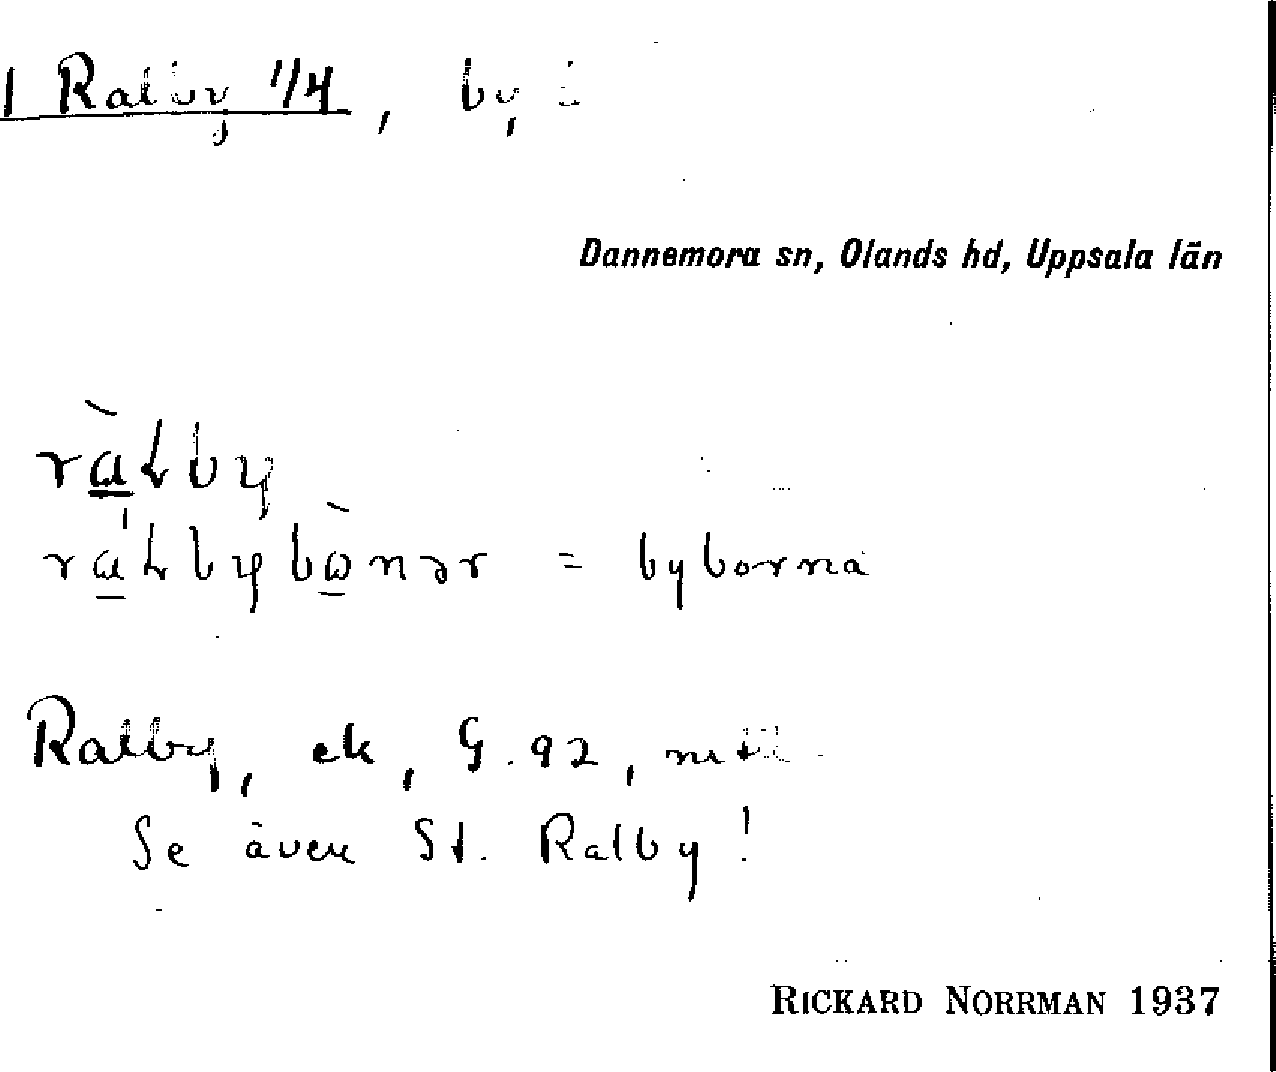 1 Ralby 1/4, by i
Dannemora sn, Olands hd, Uppsala län
ràɫby
ráɫbybònər = byborna
Ralby, ek, G. 92,
Se även St. Ralby!
RICKARD NORRMAN 1937